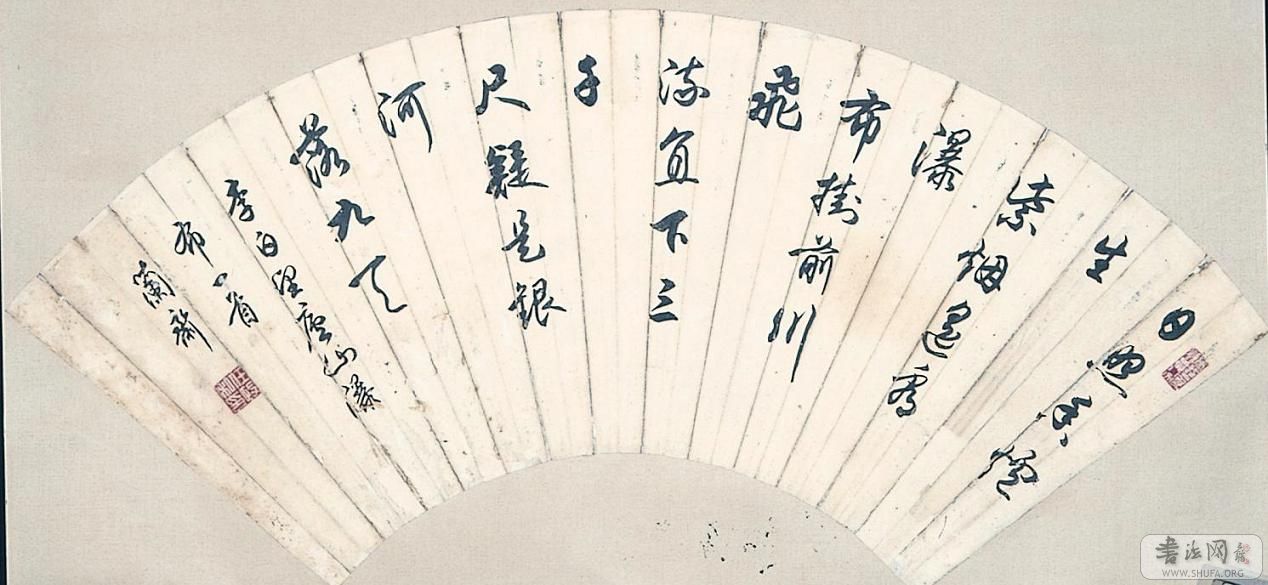 日照香爐
生
紫煙遥看
瀑
布掛前川
飛
流直下三
千
尺疑是銀
河
落九天
李白望廬山瀑
布一首
蘭齋
书法网
WWW.SHUFA.ORG